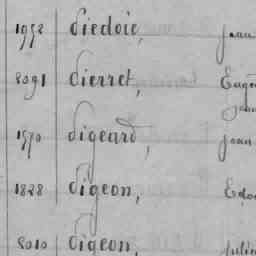 1992 Diedoie, Jean
8091 Dierret, Eugè
Jean
1590 Digeard, Jean
1828 Digeon, Edou
8010 Digeon, Julien